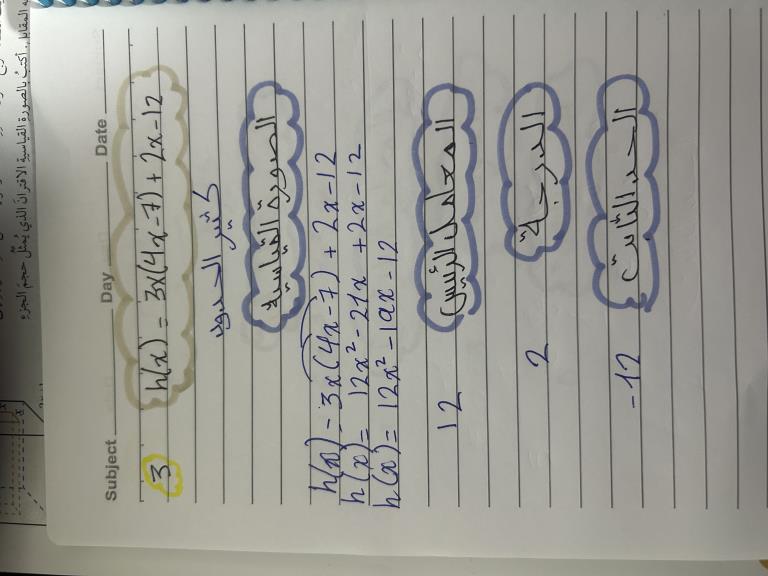 Subject Day Date
3 h(x) = 3x(4x-7) + 2x-12
كثير الحدود
الصورة القياسية
h(x) = 3x(4x-7) + 2x-12
h(x) = 12x² - 21x + 2x - 12
h(x) = 12x² - 19x - 12
المعامل الرئيس
12
الدرجة
2
الحد الثابت
-12
أكتب بالصورة القياسية الاقتران الذي يمثل حجم الجزء